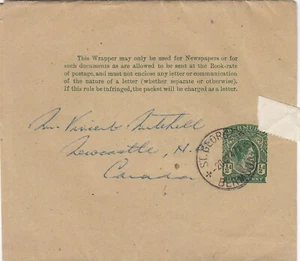 This Wrapper may only be used for Newspapers or for
such documents as are allowed to be sent at the Book-rate
of postage, and must not enclose any letter or communication
of the nature of a letter (whether separate or otherwise).
If this rule be infringed, the packet will be charged as a letter.
Vincent Mitchell
Newcastle, N.
Canada
ST. GEORGE